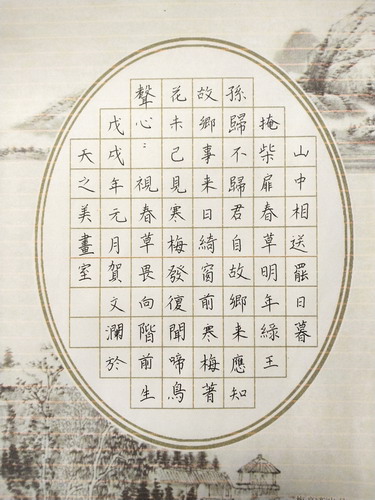 山中相送罷日暮
掩柴扉春草明年綠王
孫歸不歸君自故鄉來應知
故鄉事來日綺窗前寒梅著
花未已見寒梅發復聞啼鳥
聲心〻視春草畏向階前生
戊戌年元月賀文瀾於
天之美畫室